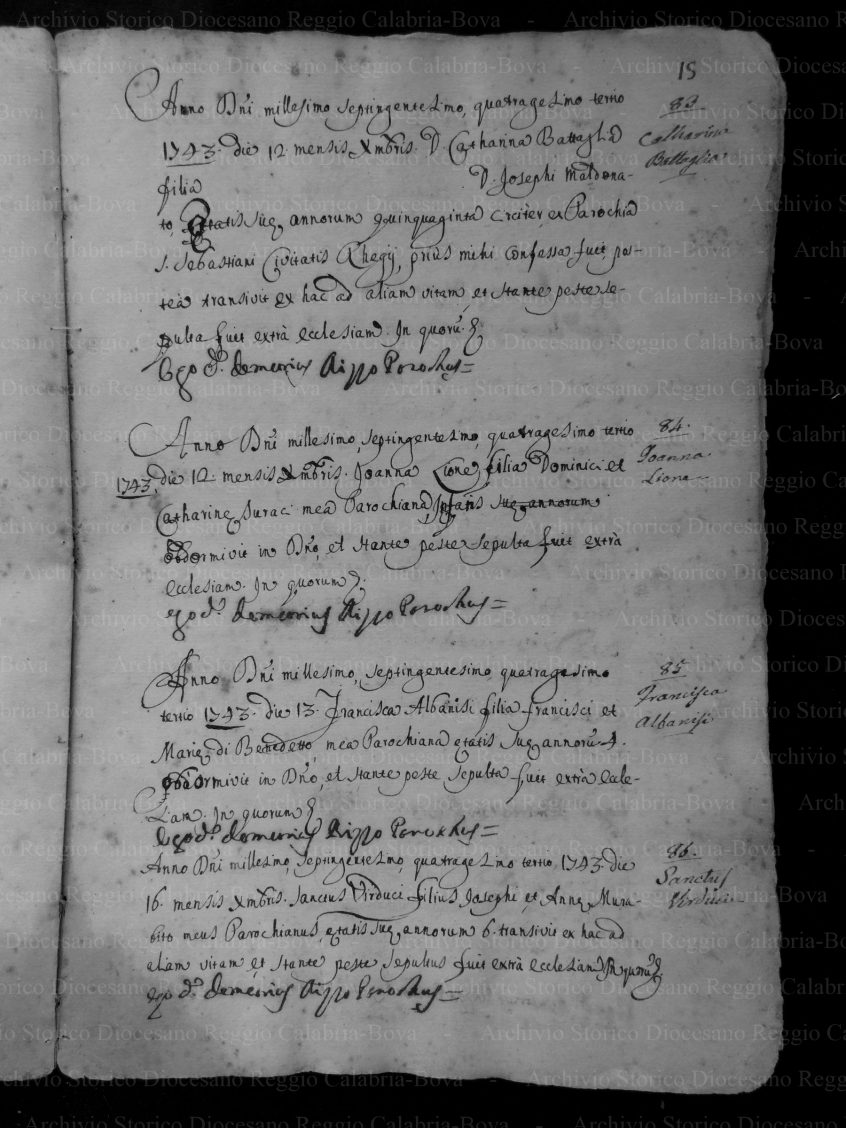 15
Anno Dñi millesimo septingentesimo, quatragesimo tertio
83.
1743. die 12 mensis Xmbris. D. Catharina Battaglia
Catharina
Battaglia
filia D. Josephi Maldona-
to Etatis suę annorum quinquaginta circiter ex Parochia
S. Sebastiani Civitatis Rhegij, prius mihi confessa fuit, pos-
teà transivit ex hac ad aliam vitam, et stante peste se-
pulta fuit extrà ecclesiam. In quorũ
Ego D. Demetrius Rippo Parochus =
Anno Dñi millesimo, septingentesimo, quatragesimo tertio
84.
1743. die 12. mensis Xmbris. Joanna Lione filia Dominici et
Joanna
Liona
Catharinę Suraci mea Parochiana suę annorum
obdormivit in Dño, et stante peste sepulta fuit extrà
ecclesiam. In quorum
ego D. Demetrius Rippo Parochus =
Anno Dñi millesimo, septingentesimo, quatragesimo
85
tertio 1743. die 13. Francisca Albanisi filia Francisci et
Francisca
Albanisi
Marię di Benedetto, mea Parochiana ętatis suę annorũ 4.
obdormivit in Dño, et stante peste sepulta fuit extrà eccle-
siam. In quorum
Ego D. Demetrius Rippo Parochus =
Anno Dñi millesimo, septingentesimo, quatragesimo tertio 1743. die
86.
Sanctus
Virduci
16. mensis Xmbris. Sanctus Virduci filius Josephi et Annę Mura-
bito meus Parochianus, ętatis suę annorum 6. transivit ex hac ad
aliam vitam et stante peste sepultus fuit extrà ecclesiam In quorũ
ego D. Demetrius Rippo Parochus =
Archivio Storico Diocesano Reggio Calabria-Bova